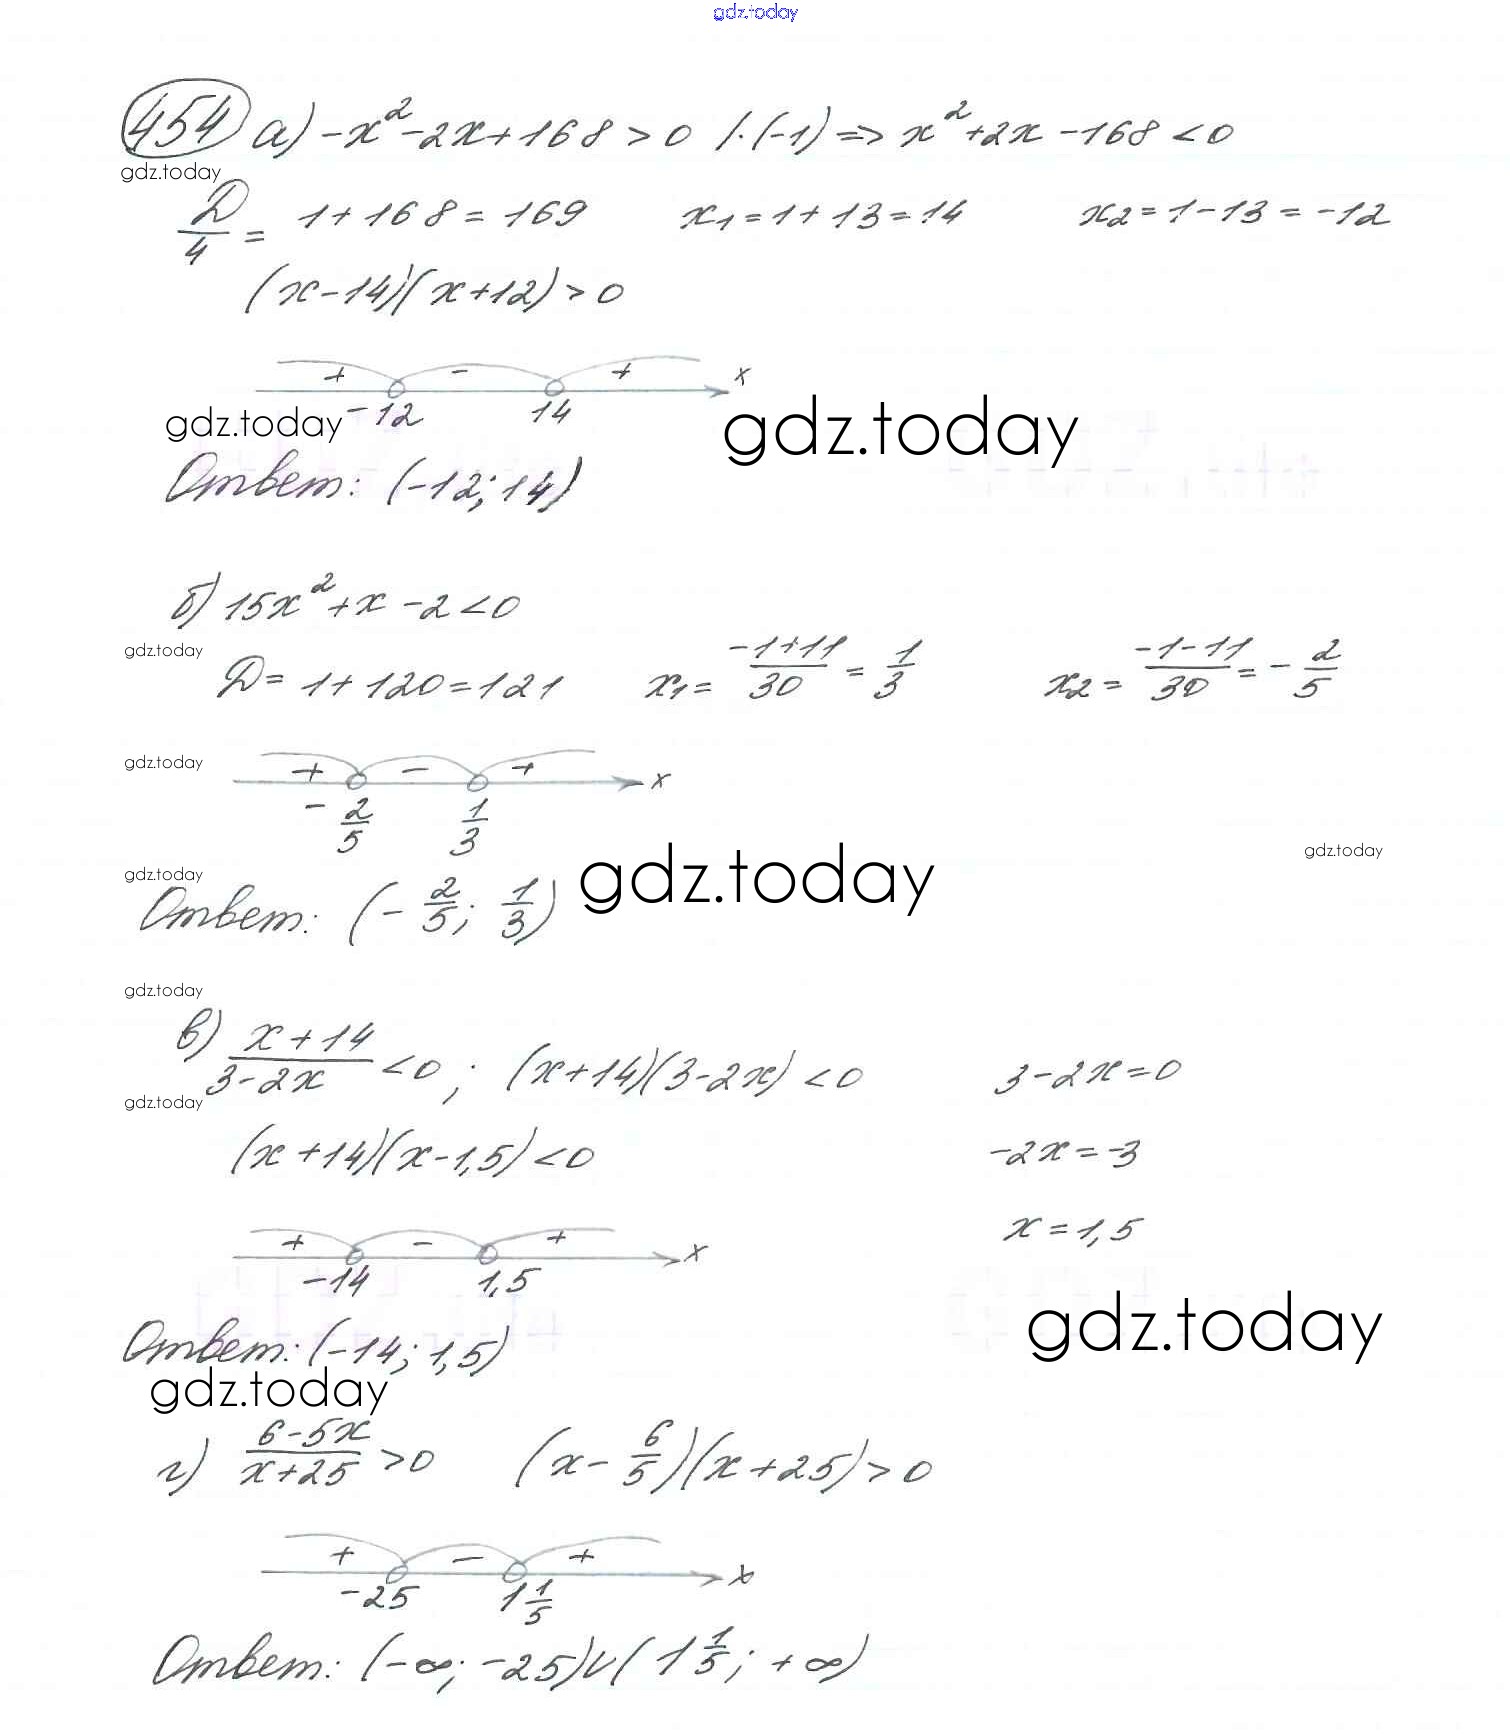 gdz.today
454 а) -x²-2x+168>0 /·(-1) => x²+2x-168<0
gdz.today
D/4 = 1+168=169 x₁=1+13=14 x₂=1-13=-12
(x-14)(x+12)>0
+ - + x
-12 14
gdz.today gdz.today
Ответ: (-12; 14)
б) 15x²+x-2<0
gdz.today
D=1+120=121 x₁=(-1+11)/30=1/3 x₂=(-1-11)/30=-2/5
gdz.today
+ - + x
-2/5 1/3
gdz.today gdz.today gdz.today
Ответ: (-2/5; 1/3)
gdz.today
в) (x+14)/(3-2x)<0; (x+14)(3-2x)<0 3-2x=0
gdz.today
(x+14)(x-1,5)<0 -2x=-3
+ - + x x=1,5
-14 1,5
gdz.today
Ответ: (-14; 1,5)
gdz.today
г) (6-5x)/(x+25)>0 (x-6/5)(x+25)>0
+ - + x
-25 1 1/5
Ответ: (-∞; -25)∪(1 1/5; +∞)